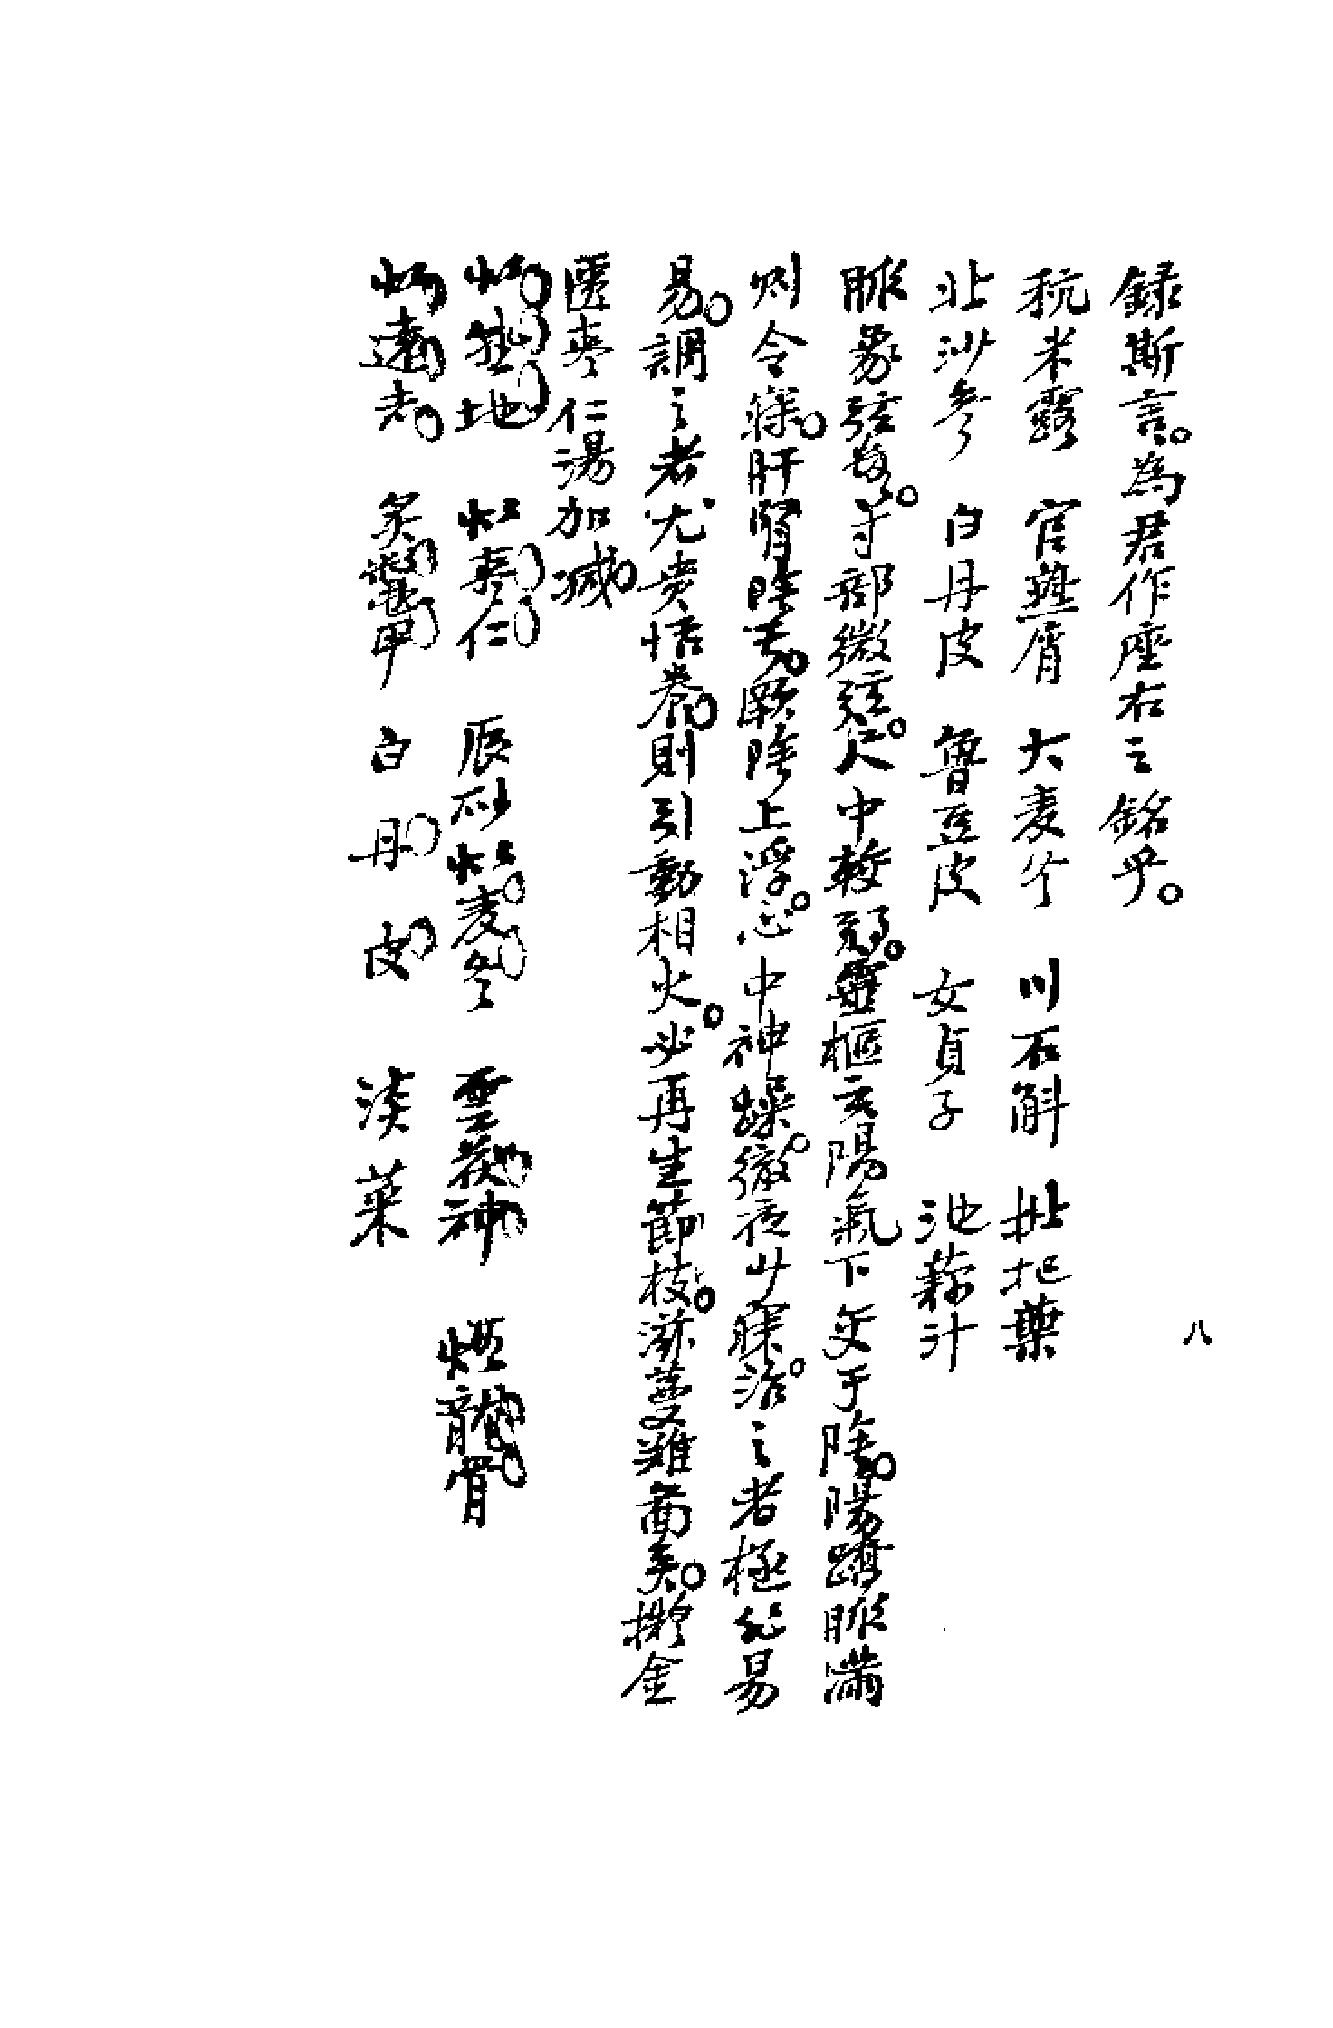 錄斯言。為君作座右之銘乎。
秔米露　官燕屑　大麦仁　川石斛　枇杷葉
北沙參　白丹皮　魯豆皮　女貞子　池藕汁
脈象弦數。寸部微弦。尺中較弱。靈樞云陽氣下交于陰。陽蹻脈滿
則令寐。肝腎陰虧。厥陰上浮。心中神躁。徹夜少寐。治之者極非易
易。調之者尤貴恬养。則引動相火。必再生節枝。滋蔓難圖矣。擬金
匱枣仁湯加减
炒熟地　炒枣仁　辰砂炒麦冬　雲茯神　煅龍骨
炒遠志　炙鱉甲　白丹皮　淡菜
八